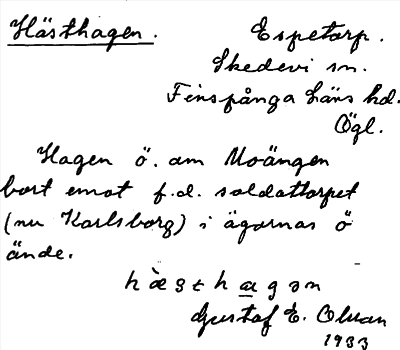 Hästhagen.
Espetorp.
Skedevi sn.
Finspånga Läns hd.
Ögl.
Hagen ö. om Moängen
bort emot f.d. soldattorpet
(nu Karlsborg) i ägornas ö
ände.
Gustaf E. Olson
1933